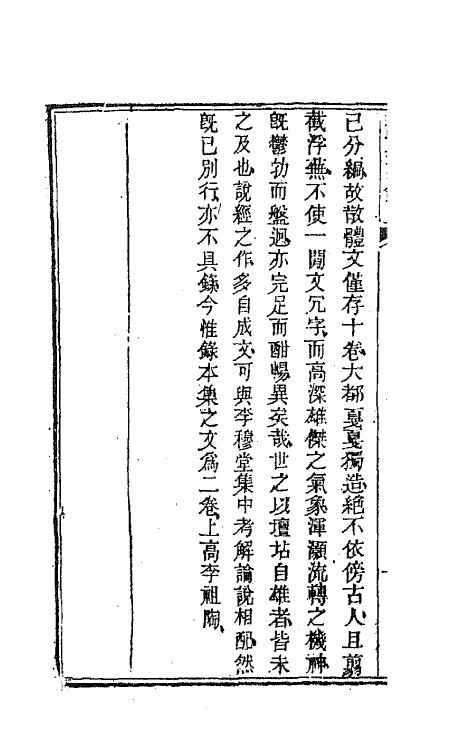 已分編故散體文僅存十卷大都戛戛獨造絕不依傍古人且翦
截浮蕪不使一閒文冗字而高深雄傑之氣象渾灝流轉之機神
旣鬱勃而盤迴亦完足而酣暢異矣哉世之以壇坫自雄者皆未
之及也說經之作多自成文可與李穆堂集中考解論說相配然
旣已別行亦不具錄今惟錄本集之文爲二卷上高李祖陶